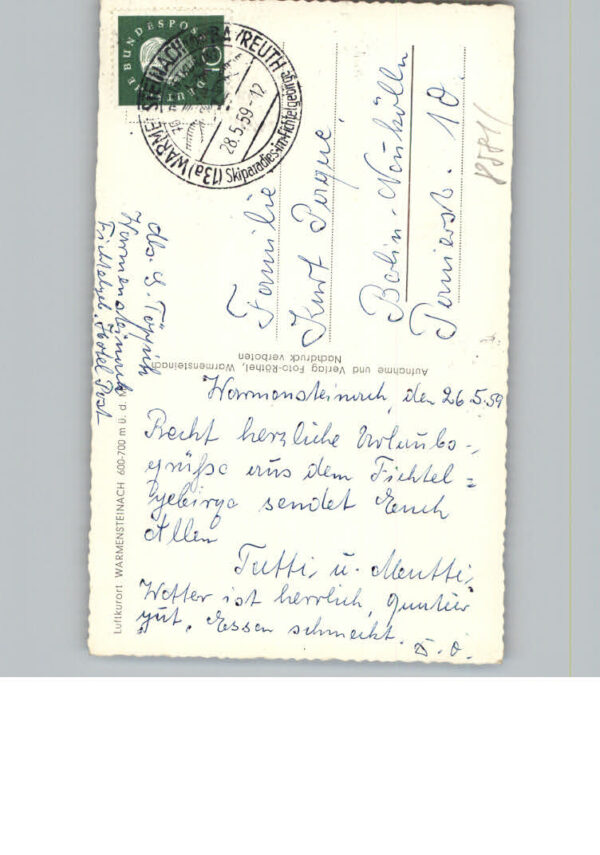 DEUTSCHE BUNDESPOST
10
(13a) WARMENSTEINACH BAYREUTH
28.5.59-12
Skiparadies im Fichtelgebirge
85811
Familie
Kurt
Berlin-Neukölln
10.
Abs. G.
Warmensteinach
Fichtelgeb. Hotel Post
Aufnahme und Verlag Foto-Röthel, Warmensteinach
Nachdruck verboten
Luftkurort WARMENSTEINACH 600-700 m ü. d. M.
Warmensteinach, den 26.5.59
Recht herzliche Urlaubs-
grüße aus dem Fichtel=
gebirge sendet Euch
Allen
u. Mutti,
Wetter ist herrlich, Quartier
gut. Essen schmeckt.